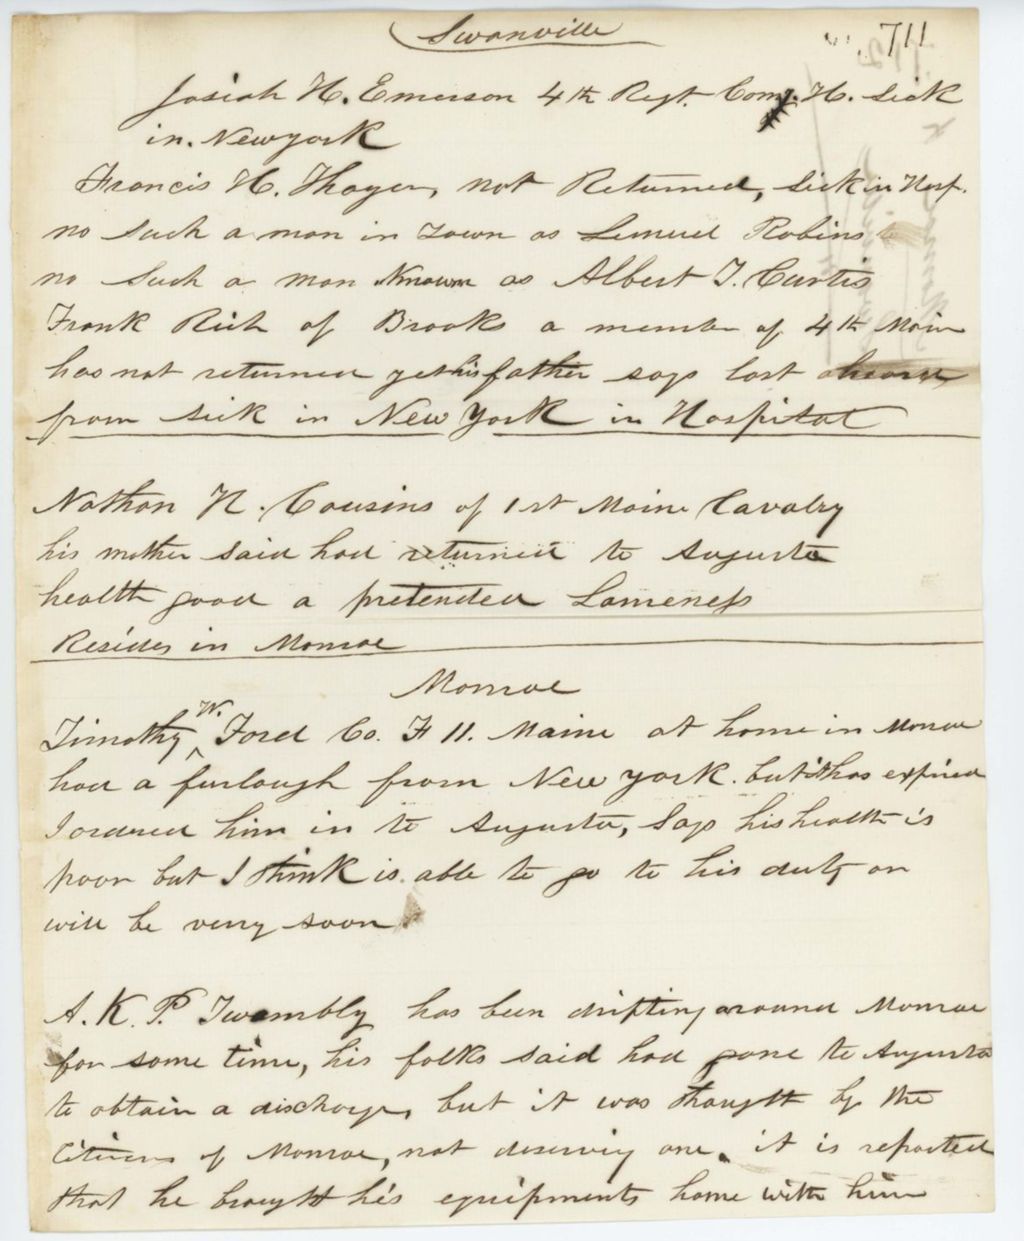 Swanville
711
Josiah H. Emerson 4th Regt. Comp. H. Sick
in. Newyork
Francis H. Thayer, not Returned, Sick in Hosp.
no Such a man in Town as Lemuel Robins
no Such a man Known as Albert T. Curtis
Frank Rich of Brooks a member of 4th Main
has not returned yet his father says last heard
from sick in New York in Hospital
Nathan N. Cousins of 1st Maine Cavalry
his mother said had returned to Augusta
health good a pretended Lameness
Resides in Monroe
Monroe
Timothy W. Ford Co. F 11. Maine at home in Monroe
had a furlough from New york. but it has expired
I ordered him in to Augusta, Says his health is
poor but I think is able to go to his duty or
will be very soon.
A. K. P. Twombly has been drifting around Monroe
for some time, his folks said had gone to Augusta
to obtain a discharge, but it was thought by the
Citizens of Monroe, not deserving one. it is reported
that he brought his equipments home with him